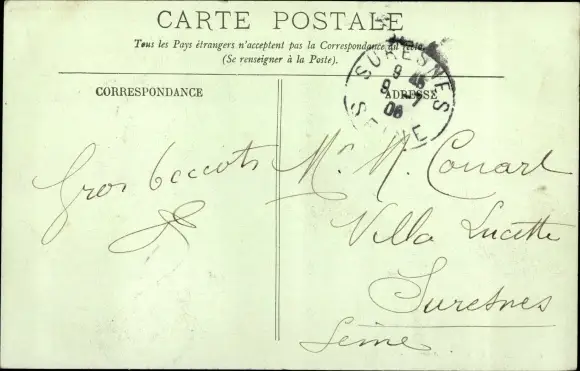 CARTE POSTALE
Tous les Pays étrangers n'acceptent pas la Correspondance au recto.
(Se renseigner à la Poste).
CORRESPONDANCE
ADRESSE
SURESNES
9 45
9 - 7
06
SEINE
Gros beccots
Mr M. Conart
Villa Lucette
Suresnes
Seine